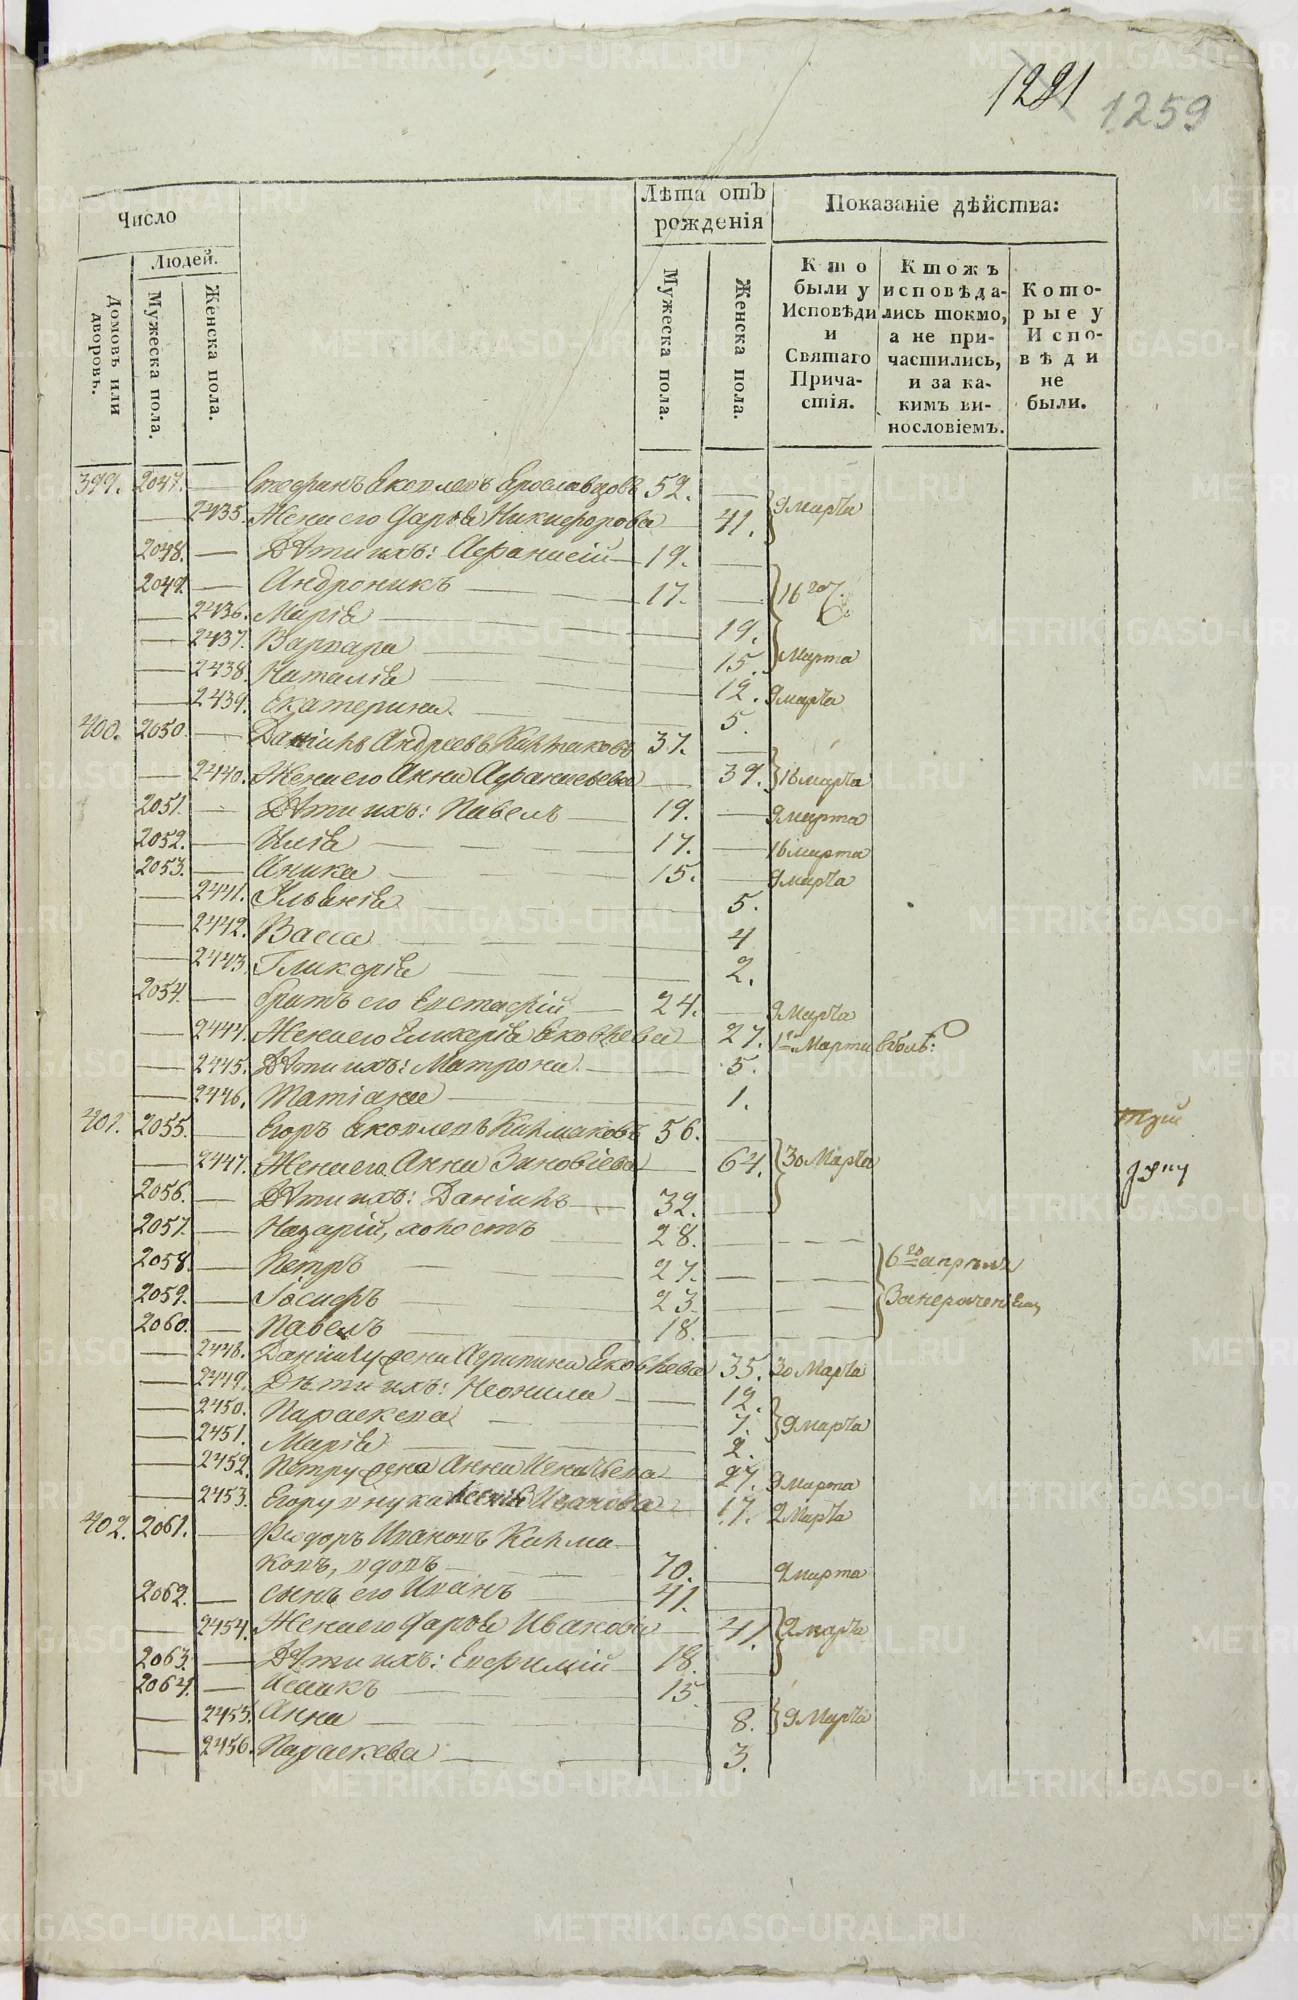 1221 1259
Число
Людей.
Домовъ или дворовъ.
Мужеска пола.
Женска пола.
Лѣта отъ рожденія
Мужеска пола.
Женска пола.
Показаніе дѣйства:
Кто были у Исповѣди и Святаго Причастія.
Ктожъ исповѣдались токмо, а не причастились, и за какимъ винословіемъ.
Которые у Исповѣди не были.
399. 2047. — Яковлевъ 52. —
— 2435. Жена его Дарья Никифорова — 41. 9 марта
2048. — Дѣти ихъ: Афанасій — 19. —
2049. — Андроникъ — 17. — 16го
— 2436. Марія — 19.
— 2437. Варвара — 15. Марта
— 2438. Наталія — 12. 9 марта
— 2439. Екатерина — 5.
400. 2050. — Даніилъ Андреевъ 37. —
— 2440. Жена его Анна Афанасьева — 39. 16 марта
2051. — Дѣти ихъ: Павелъ — 19. — 9 марта
2052. — Илія — 17. — 16 марта
2053. — Аника — 15. — 9 марта
— 2441. Ульянія — 5.
— 2442. Васса — 4
— 2443. Гликерія — 2.
2054. — Братъ его Евстафій — 24. — 9 Марта
— 2444. Жена его Гликерія Яковлева — 27. Марта
— 2445. Дѣти ихъ: Матрона — 5.
— 2446. Татіана — 1.
401. 2055. — Егоръ Яковлевъ Килмаковъ 56. —
— 2447. Жена его Анна Зиновіева — 64. 30 Марта
2056. — Дѣти ихъ: Даніилъ — 32. —
2057. — Назарій, холостъ — 28. — — —
2058. — Петръ — 27. — — — 6го апрѣля
2059. — Іосифъ — 23. — — —
2060. — Павелъ — 18. — — —
— 2448. Даніилу жена Агрипина Яковлева 35. 30 Марта
— 2449. Дѣти ихъ: Неонила — 12.
— 2450. Параскева — 7. 9 Марта
— 2451. Марія — 2.
— 2452. Петру жена Анна — 27. 9 Марта
— 2453. Егору внука Иванова — 17. 2 Марта
402. 2061. — Фидоръ Ивановъ Килма-
ковъ, вдовъ — 70. — 2 марта
2062. — сынъ его Иванъ — 41. —
— 2454. Жена его Дарья Иванова — 41. 2 марта
2063. — Дѣти ихъ: Евфимій — 18. —
2064. — Исаакъ — 15. —
— 2455. Анна — 8. 9 Марта
— 2456. Параскева — 3.
METRIKI.GASO-URAL.RU